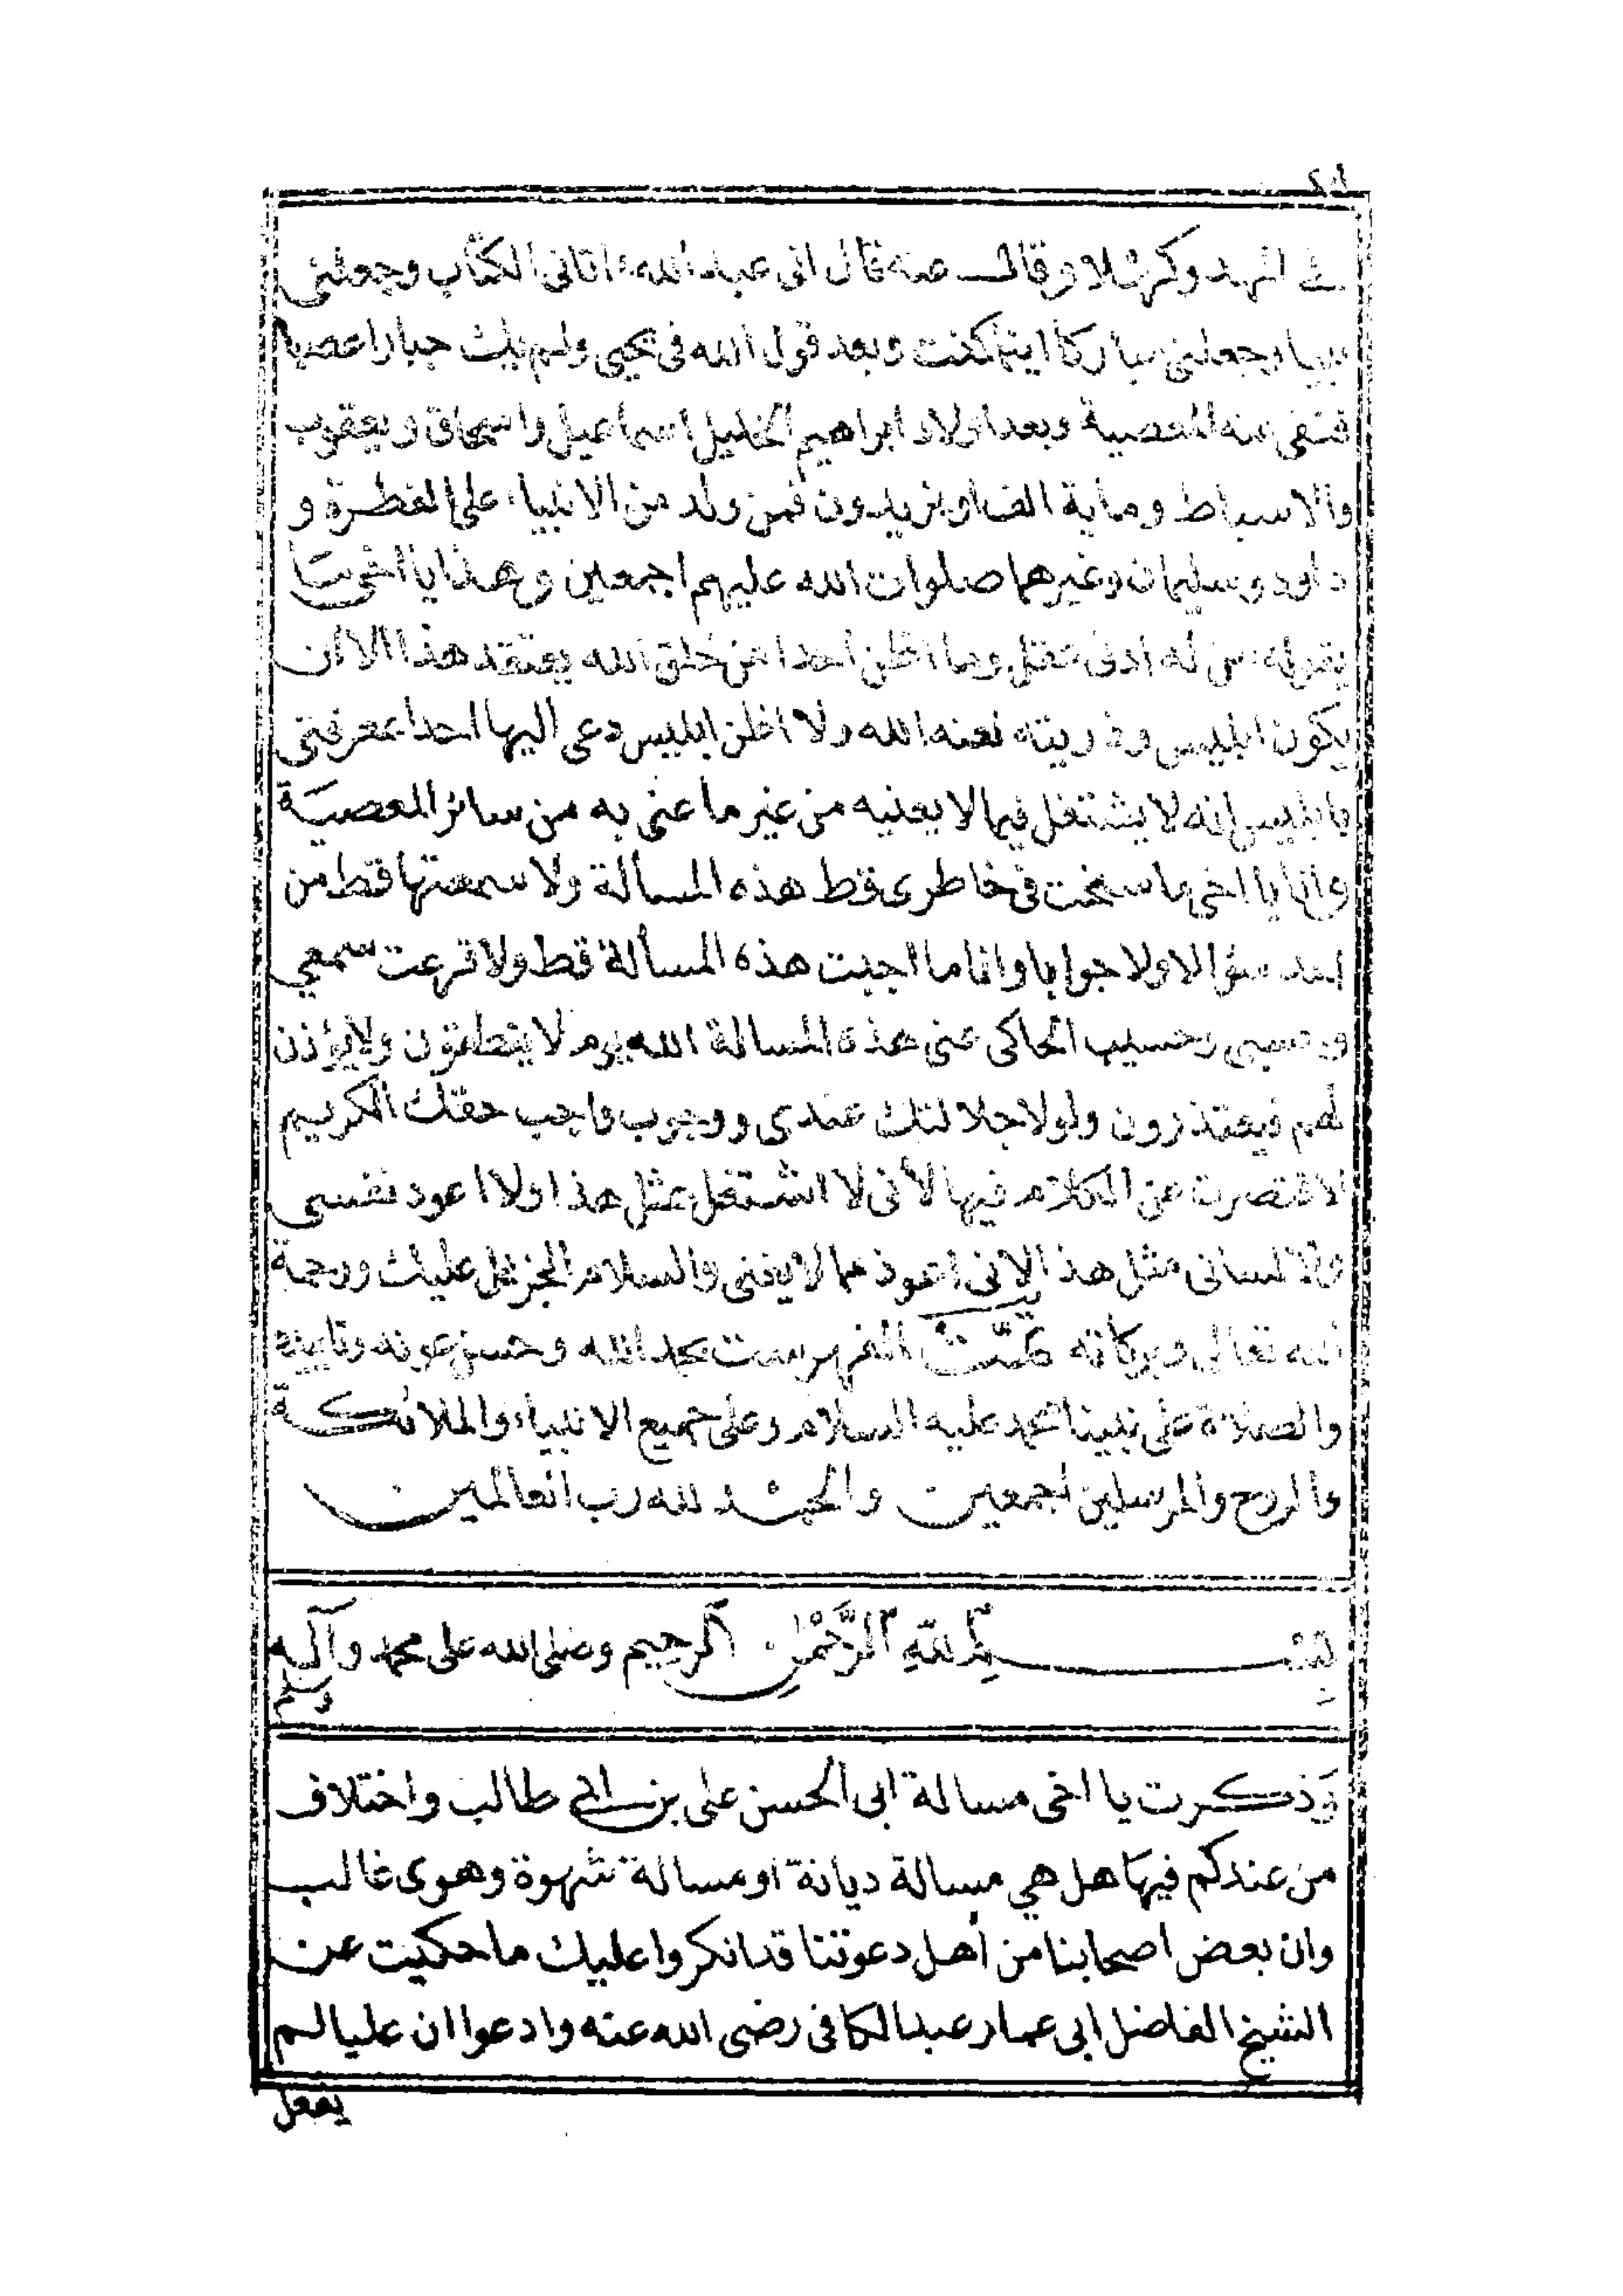 في المهد وكهلا وقال عنه قال انى عبد الله اتانى الكتاب وجعلنى
نبيا وجعلنى مباركا اينما كنت وبعد قول الله فى يحيى ولم يك جبارا عصيا
فنفى عنه المعصية وبعد اولاد ابراهيم الخليل اسماعيل واسحاق ويعقوب
والاسباط وماية الف او يزيدون فمن ولد من الانبياء على الفطرة و
داود وسليمان وغيرهما صلوات الله عليهم اجمعين وهذا يا اخى
يقوله من له ادنى عقل وما اظن احدا من خلق الله يعتقد هذا الا ان
يكون ابليس وذريته لعنه الله ولا اظن ابليس دعى اليها احدا بمعرفتى
بابليس انه لا يشتغل فيما لا يعنيه من غير ما عنى به من سائر المعصية
وانا يا اخى ما سنحت فى خاطرى قط هذه المسألة ولا سمعتها قط من
احد سؤالا ولا جوابا وانا ما اجبت هذه المسألة قط ولا قرعت سمعي
وحسيب الحاكى عنى هذه المسالة الله يوم لا ينطقون ولا يؤذن
لهم فيعتذرون ولولا جلالتك عندى ووجوب واجب حقك الكريم
لاقتصرت عن الكلام فيها لأنى لا اشتغل بمثل هذا ولا اعود نفسى
ولا لسانى مثل هذا لانى اعوذ مما لا يعنى والسلام الجزيل عليك ورحمة
الله تعالى وبركاته تمّت الفهرست بحمد الله وحسن عونه وتاييده
والصلاة على نبينا محمد عليه السلام وعلى جميع الانبياء والملائكة
والروح والمرسلين اجمعين والحمد لله رب العالمين
بسم الله الرَّحْمٰن الرحيم وصلى الله على محمد وآله
وسلم
وذكرت يا اخى مسالة ابى الحسن على بن ابي طالب واختلاف
من عندكم فيها هل هي مسالة ديانة او مسالة شهوة وهوى غالب
وان بعض اصحابنا من أهل دعوتنا قد انكروا عليك ما حكيت عن
الشيخ الفاضل ابى عمار عبد الكافى رضى الله عنه وادعوا ان عليا لم
يفعل